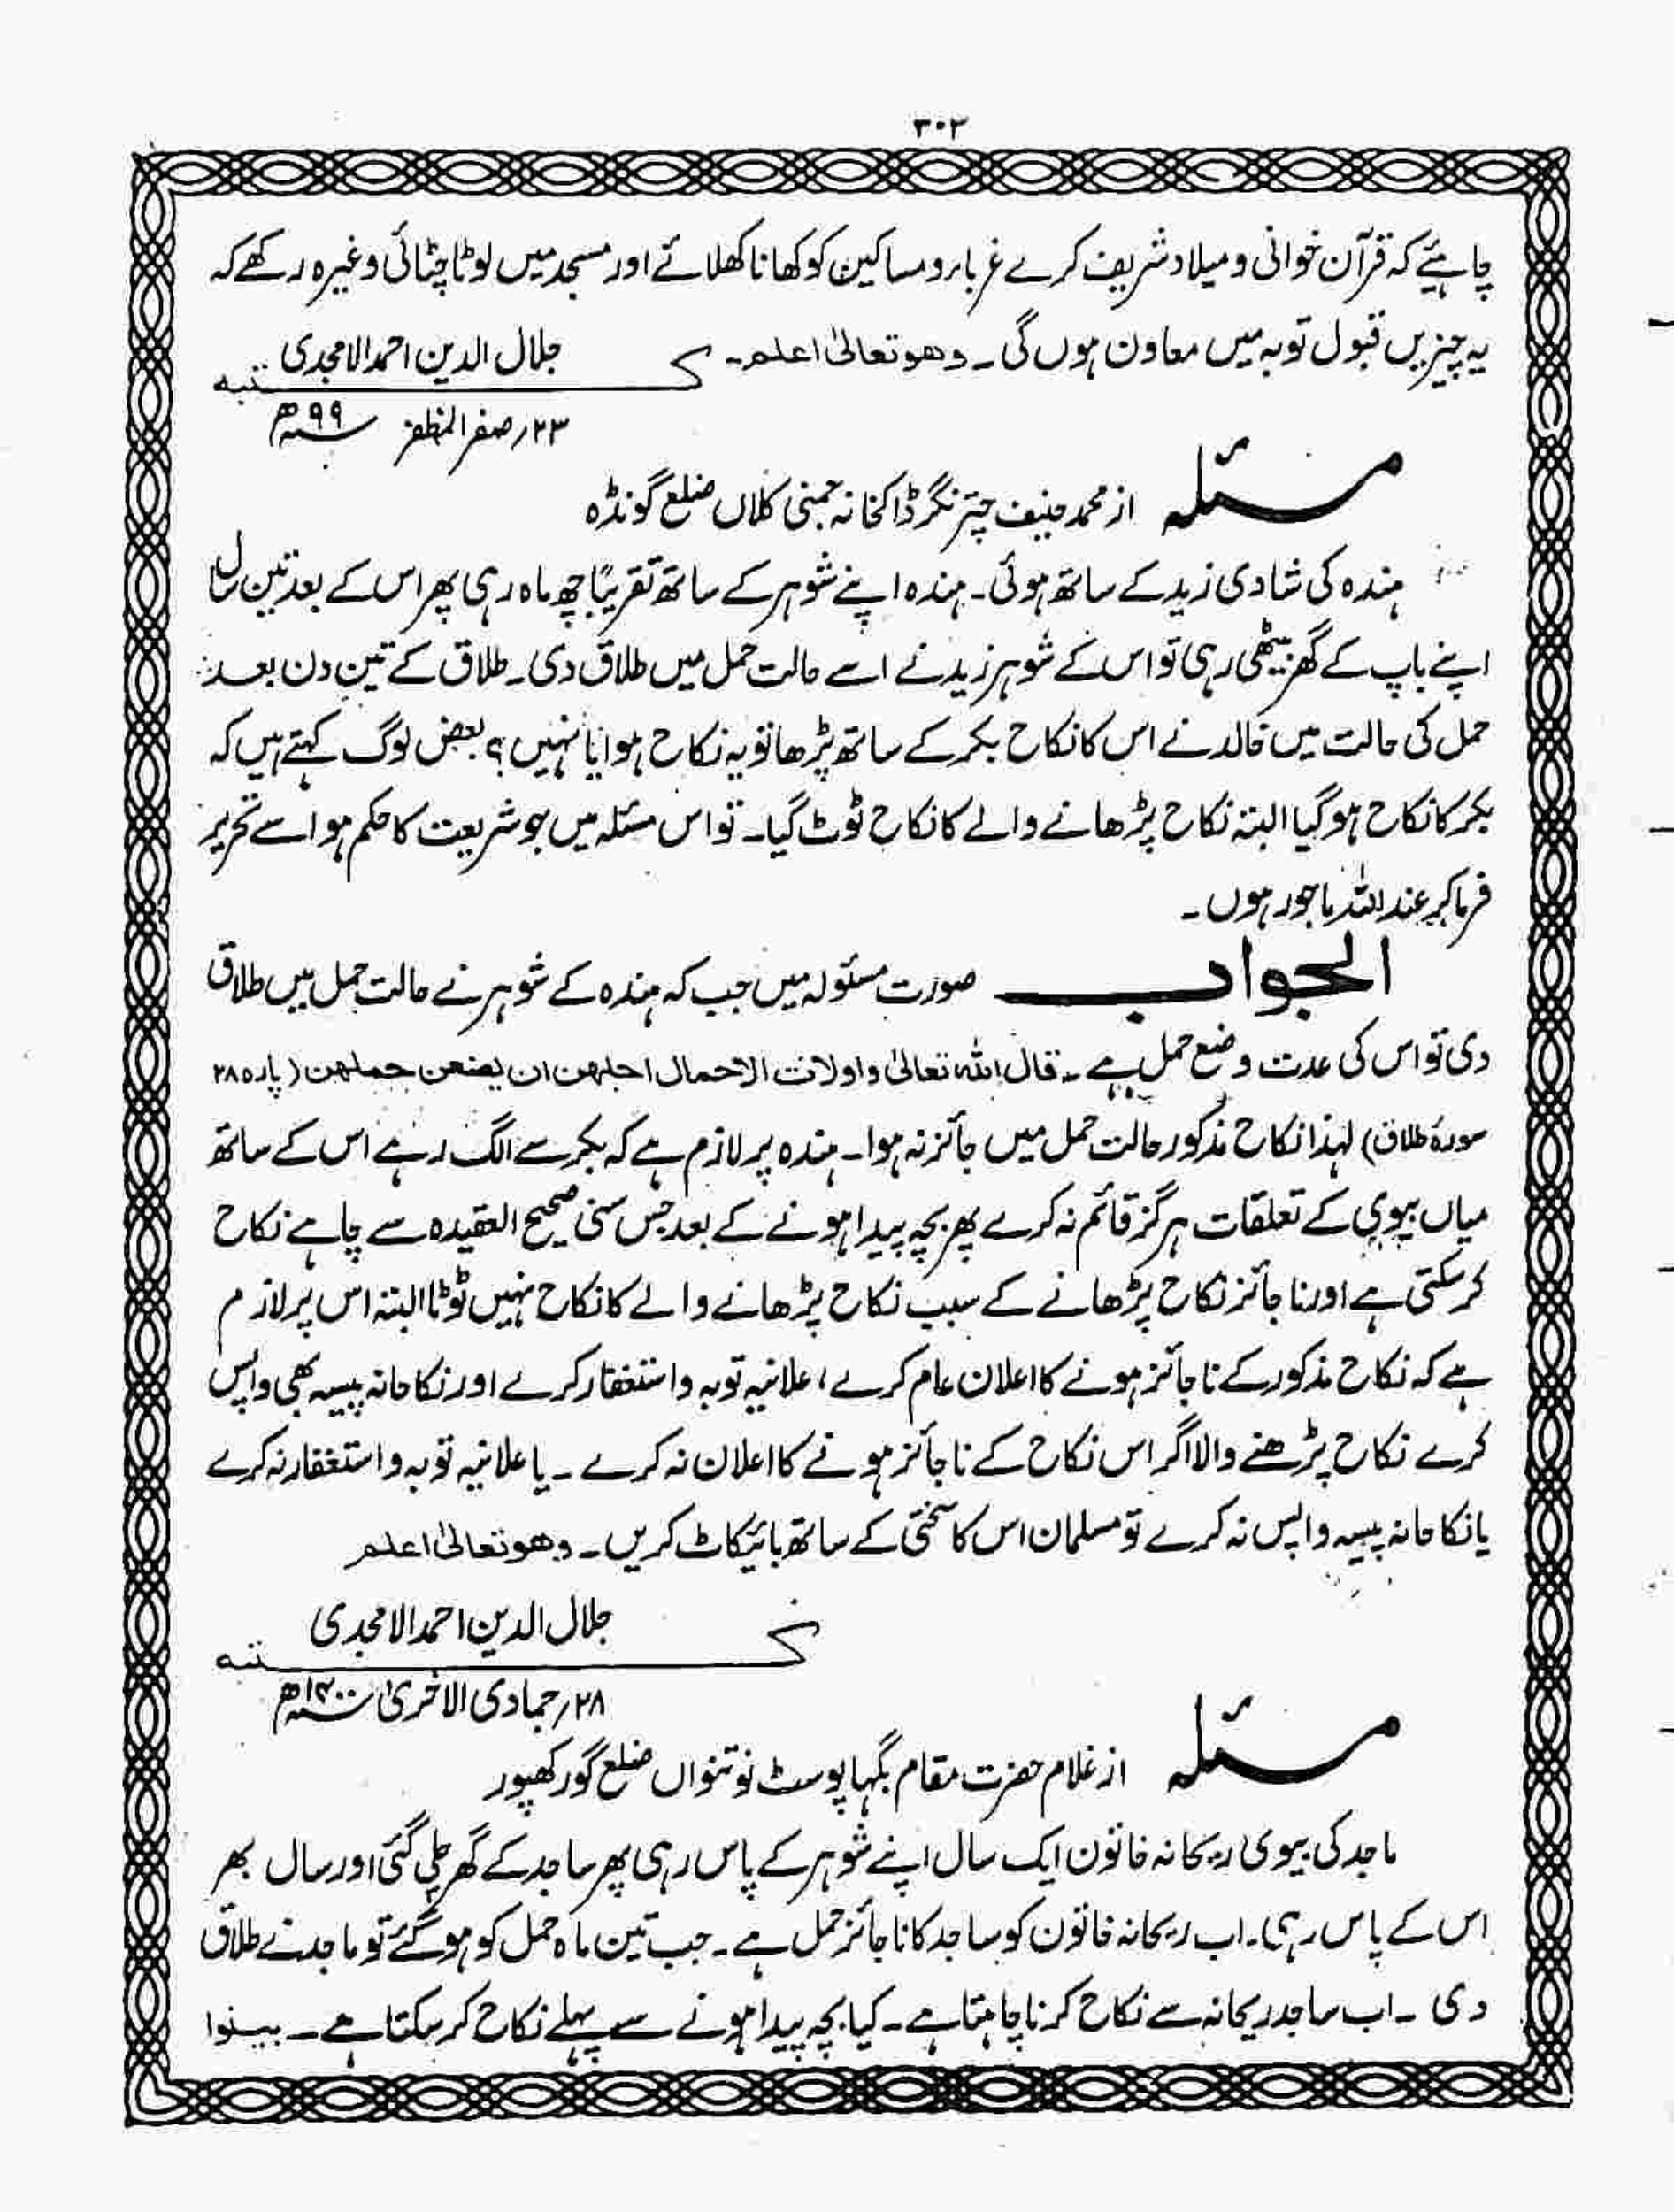 ۳۰۲
چاہئیے کہ قرآن خوانی و میلاد شریف کرے غرباء و مساکین کو کھانا کھلائے اور مسجد میں لوٹا چٹائی وغیرہ رکھے کہ
یہ چیزیں قبول توبہ میں معاون ہوں گی۔ وھو تعالیٰ اعلم۔ کتبہ جلال الدین احمد الامجدی
۲۳؍ صفر المظفر ۹۹ھ
مسئلہ از محمد حنیف چتر نگر ڈاکخانہ جمنی کلاں ضلع گونڈہ
ہندہ کی شادی زید کے ساتھ ہوئی۔ ہندہ اپنے شوہر کے ساتھ تقریبًا چھ ماہ رہی پھر اس کے بعد تین سال
اپنے باپ کے گھر بیٹھی رہی تو اس کے شوہر زید نے اسے حالت حمل میں طلاق دی۔ طلاق کے تین دن بعد
حمل کی حالت میں خالد نے اس کا نکاح بکر کے ساتھ پڑھا تو یہ نکاح ہوا یا نہیں؟ بعض لوگ کہتے ہیں کہ
بکر کا نکاح ہو گیا البتہ نکاح پڑھانے والے کا نکاح ٹوٹ گیا۔ تو اس مسئلہ میں جو شریعت کا حکم ہو اسے تحریر
فرما کر عند اللہ ماجور ہوں۔
الجواب صورت مسئولہ میں جب کہ ہندہ کے شوہر نے حالت حمل میں طلاق
دی تو اس کی عدت وضع حمل ہے۔ قال اللہ تعالیٰ واولات الاحمال اجلھن ان یضعن حملھن (پارہ ۲۸
سورۂ طلاق) لہذا نکاح مذکور حالت حمل میں جائز نہ ہوا۔ ہندہ پر لازم ہے کہ بکر سے الگ رہے اس کے ساتھ
میاں بیوی کے تعلقات ہرگز قائم نہ کرے پھر بچہ پیدا ہونے کے بعد جس سنی صحیح العقیدہ سے چاہے نکاح
کر سکتی ہے اور ناجائز نکاح پڑھانے کے سبب نکاح پڑھانے والے کا نکاح نہیں ٹوٹا البتہ اس پر لازم
ہے کہ نکاح مذکور کے ناجائز ہونے کا اعلان عام کرے، علانیہ توبہ و استغفار کرے اور نکاحانہ پیسہ بھی واپس
کرے نکاح پڑھنے والا اگر اس نکاح کے ناجائز ہونے کا اعلان نہ کرے۔ یا علانیہ توبہ و استغفار نہ کرے
یا نکاحانہ پیسہ واپس نہ کرے تو مسلمان اس کا سختی کے ساتھ بائیکاٹ کریں۔ وھو تعالیٰ اعلم
کتبہ جلال الدین احمد الامجدی
۲۸؍ جمادی الاخریٰ ۱۴۰۰ھ
مسئلہ از غلام حضرت مقام بگہا پوسٹ نوتنواں ضلع گورکھپور
ماجد کی بیوی ریحانہ خاتون ایک سال اپنے شوہر کے پاس رہی پھر ساجد کے گھر چلی گئی اور سال بھر
اس کے پاس رہی۔ اب ریحانہ خاتون کو ساجد کا ناجائز حمل ہے۔ جب تین ماہ حمل کو ہو گئے تو ماجد نے طلاق
دی۔ اب ساجد ریحانہ سے نکاح کرنا چاہتا ہے۔ کیا بچہ پیدا ہونے سے پہلے نکاح کر سکتا ہے۔ بینوا